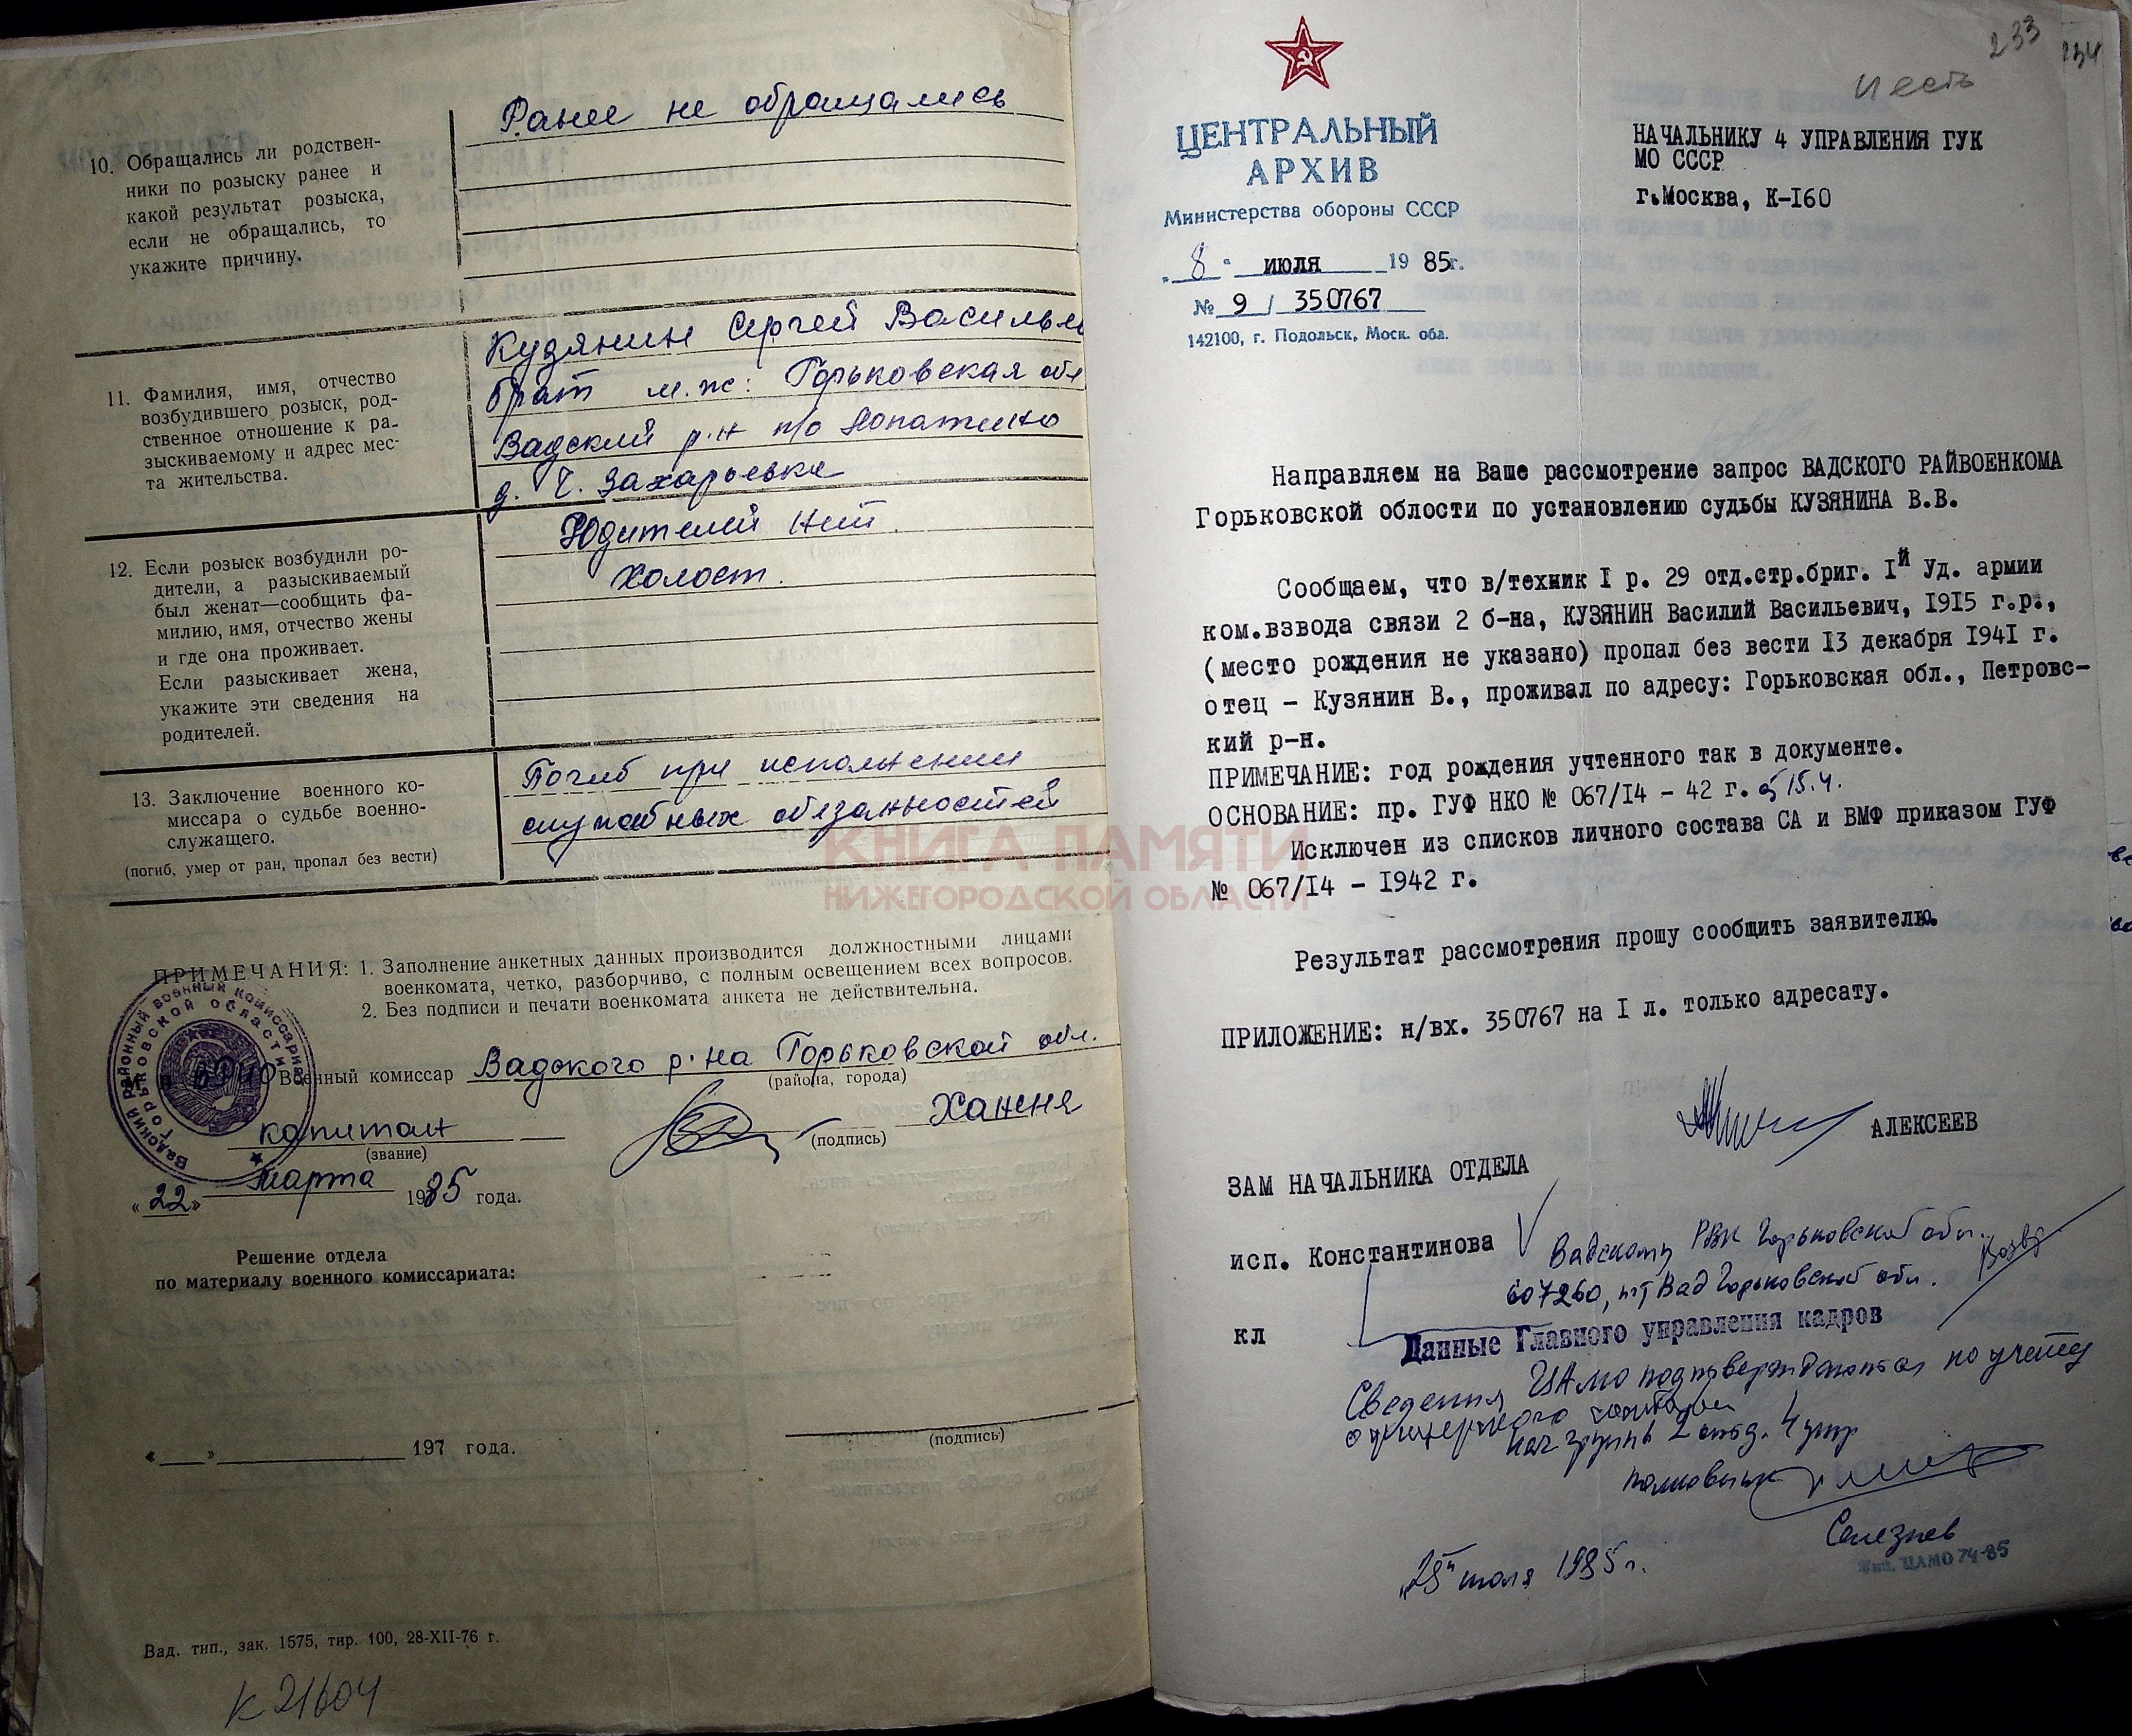 10. Обращались ли родствен-
ники по розыску ранее и
какой результат розыска,
если не обращались, то
укажите причину.
Ранее не обращались
11. Фамилия, имя, отчество
возбудившего розыск, род-
ственное отношение к ра-
зыскиваемому и адрес мес-
та жительства.
Кудянин Сергей Василье
брат м.ж: Горьковская обл
Вадский р-н п/о Лопатино
д. Ч. Захарьевка
12. Если розыск возбудили ро-
дители, а разыскиваемый
был женат—сообщить фа-
милию, имя, отчество жены
и где она проживает.
Если разыскивает жена,
укажите эти сведения на
родителей.
Родителей нет.
Холост.
13. Заключение военного ко-
миссара о судьбе военно-
служащего.
(погиб, умер от ран, пропал без вести)
Погиб при исполнении
служебных обязанностей
ПРИМЕЧАНИЯ: 1. Заполнение анкетных данных производится должностными лицами
военкомата, четко, разборчиво, с полным освещением всех вопросов.
2. Без подписи и печати военкомата анкета не действительна.
Вадский районный военный комиссариат
Горьковской области
Военный комиссар Вадского р-на Горьковской обл.
(района, города)
капитан
(звание)
(подпись)
Ханеня
«22» марта 1985 года.
Решение отдела
по материалу военного комиссариата:
«___»______________ 197 года.
(подпись)
Вад. тип., зак. 1575, тир. 100, 28-XII-76 г.
К 21604
КНИГА ПАМЯТИ
НИЖЕГОРОДСКОЙ ОБЛАСТИ
233
234
и есть
ЦЕНТРАЛЬНЫЙ
АРХИВ
Министерства обороны СССР
„8“ июля 1985г.
№ 9 / 350767
142100, г. Подольск, Моск. обл.
НАЧАЛЬНИКУ 4 УПРАВЛЕНИЯ ГУК
МО СССР
г.Москва, К-I60
Направляем на Ваше рассмотрение запрос ВАДСКОГО РАЙВОЕНКОМА
Горьковской облости по установлению судьбы КУЗЯНИНА В.В.
Сообщаем, что в/техник I р. 29 отд.стр.бриг. Iй Уд. армии
ком.взвода связи 2 б-на, КУЗЯНИН Василий Васильевич, I9I5 г.р.,
(место рождения не указано) пропал без вести I3 декабря I94I г.
отец - Кузянин В., проживал по адресу: Горьковская обл., Петровс-
кий р-н.
ПРИМЕЧАНИЕ: год рождения учтенного так в документе.
ОСНОВАНИЕ: пр. ГУФ НКО № 067/I4 - 42 г.
Исключен из списков личного состава СА и ВМФ приказом ГУФ
№ 067/I4 - I942 г.
Результат рассмотрения прошу сообщить заявителю.
ПРИЛОЖЕНИЕ: н/вх. 350767 на I л. только адресату.
АЛЕКСЕЕВ
ЗАМ НАЧАЛЬНИКА ОТДЕЛА
исп. Константинова
Вадскому РВК Горьковской обл.
607260, пгт Вад Горьковской обл.
кл
Данные Главного управления кадров
Сведения ЦАМО подтверждаются по учету
офицерского состава
нач группы 2 отд. 4 упр
полковник
Селезнев
„25“ июля 1985 г.
Тип. ЦАМО 74-85